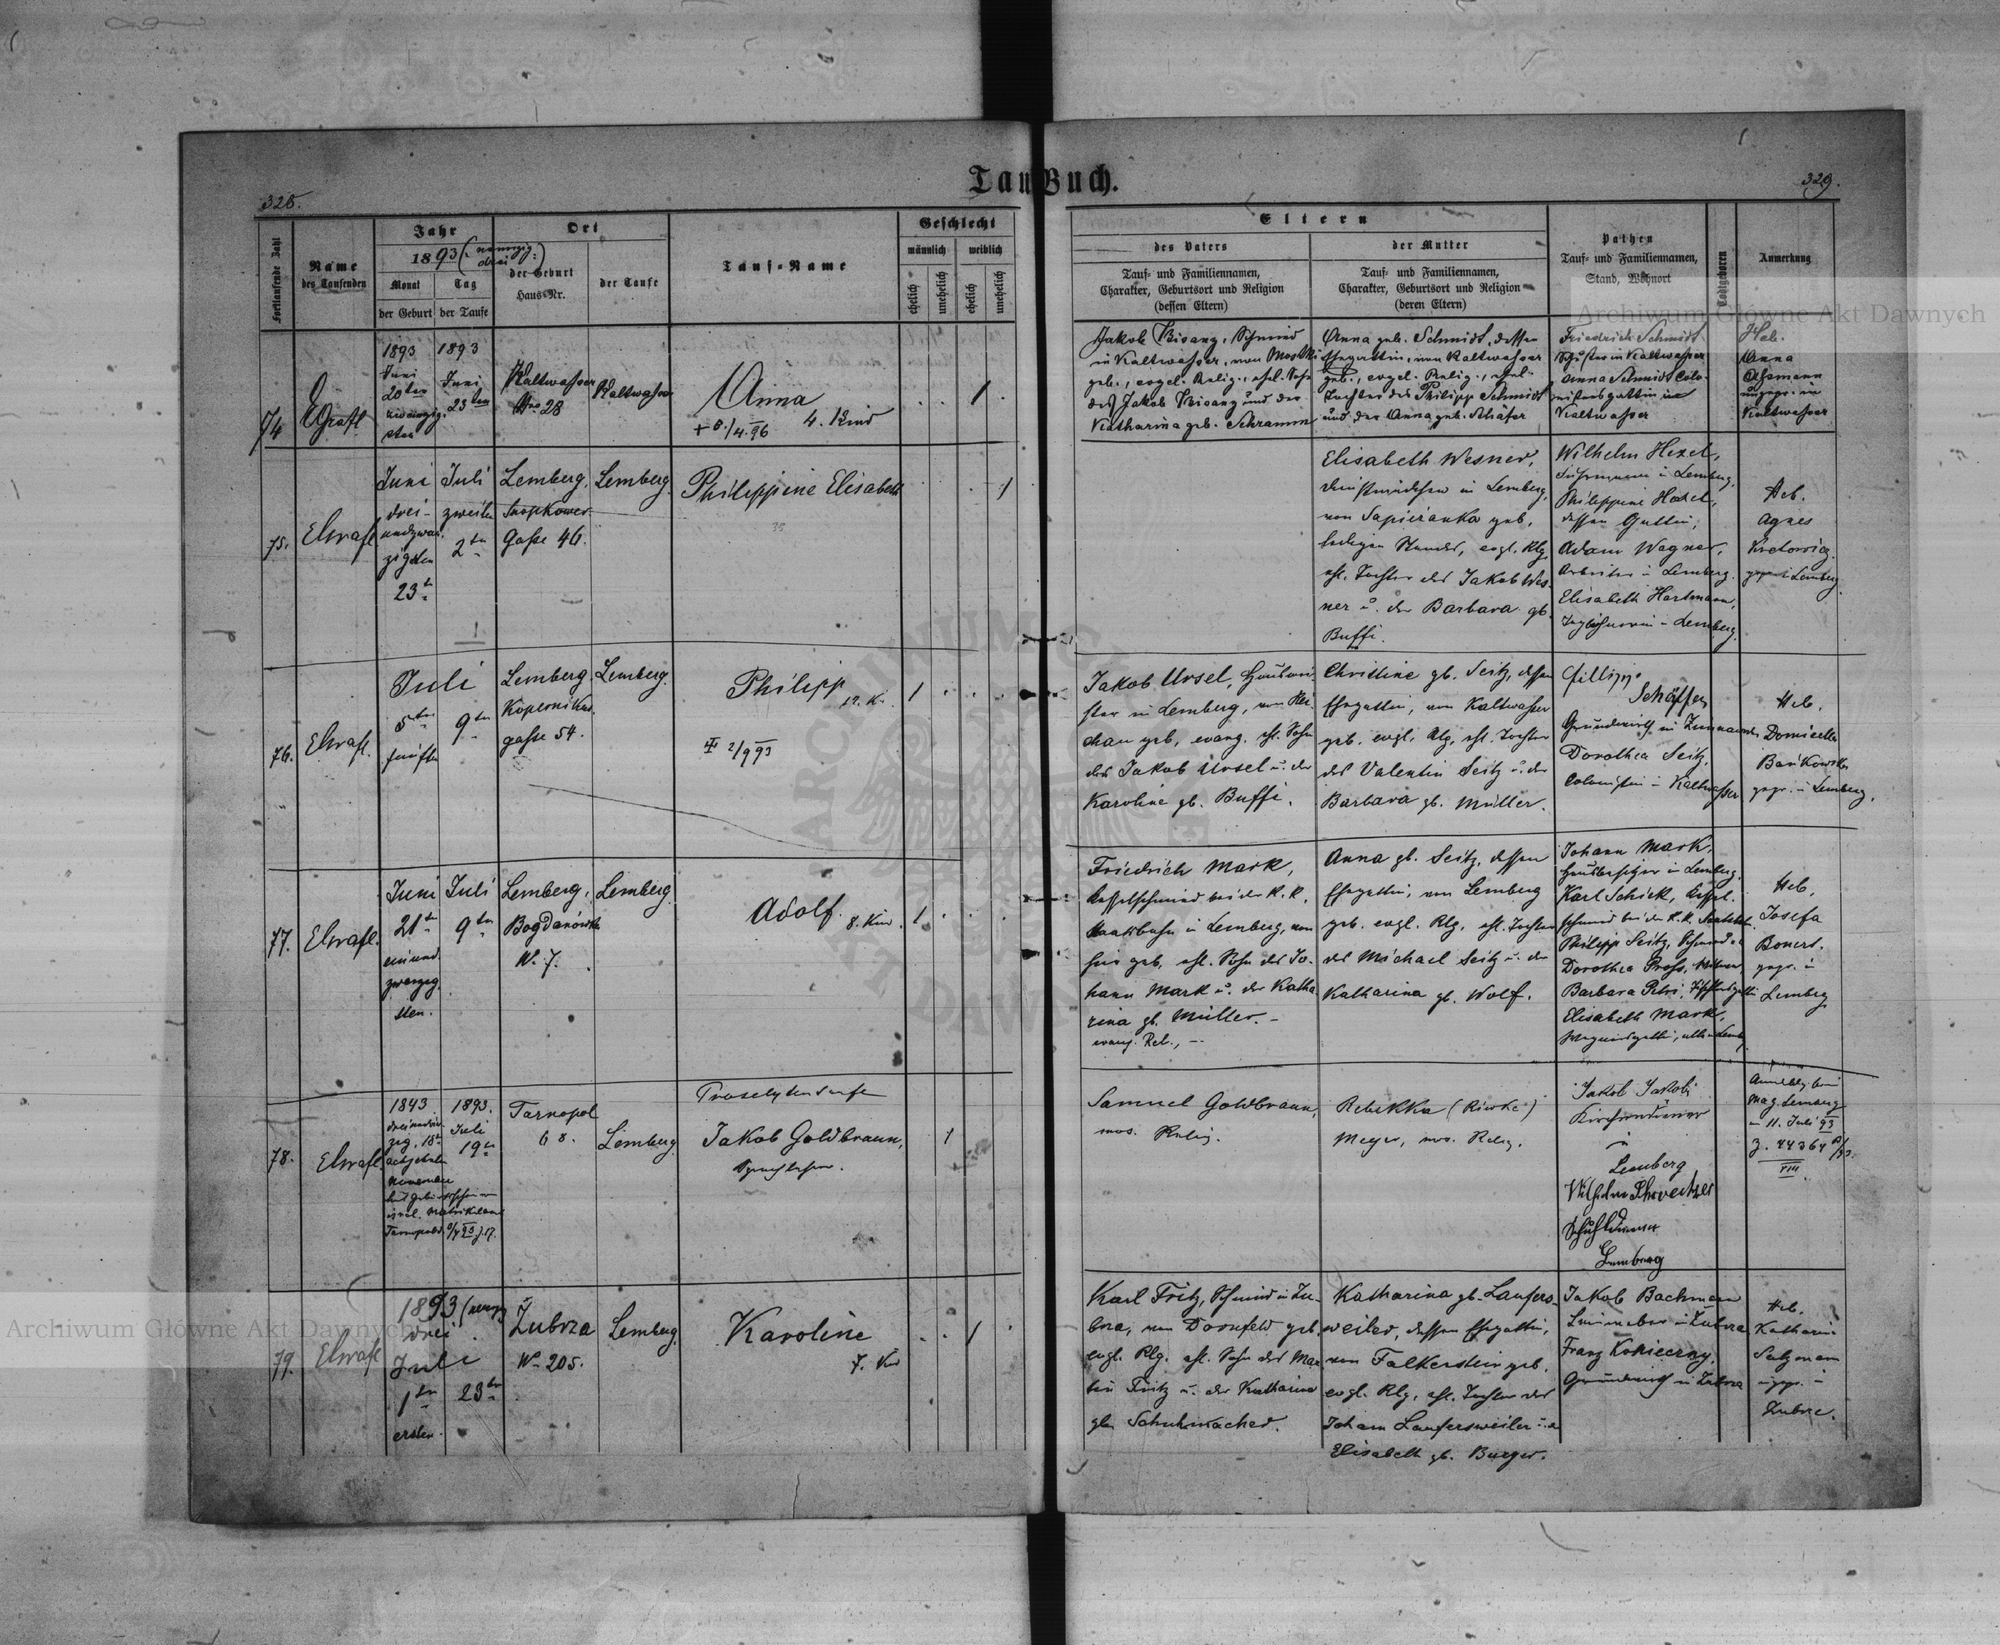 Tauf Buch.
328.
329.
Fortlaufende Zahl
Name
des Taufenden
Jahr
1893 (neunzig:
drei)
Monat
Tag
der Geburt
der Taufe
Ort
der Geburt
Haus-Nr.
der Taufe
Tauf-Name
Geschlecht
männlich
weiblich
ehelich
unehelich
ehelich
unehelich
Eltern
des Vaters
Tauf- und Familiennamen,
Charakter, Geburtsort und Religion
(dessen Eltern)
der Mutter
Tauf- und Familiennamen,
Charakter, Geburtsort und Religion
(deren Eltern)
Pathen
Tauf- und Familiennamen,
Stand, Wohnort
Todtgeboren
Anmerkung
74
1893
Juni
20ten
zwanzig-
sten
1893
Juni
23ten
Kaltwasser
Nro 28
Kaltwasser
Anna
4. Kind
1
Jakob Bisanz, Schmied
in Kaltwasser, von
geb., evgel. Relig., ehel. Sohn
des Jakob Bisanz und der
Katharina geb. Schramm
Anna geb. Schmidt, dessen
Ehegattin, von Kaltwasser
geb., evgel. Relig., ehel.
Tochter des Philipp Schmidt
und der Anna geb. Schäfer
Friedrich Schmidt
Schuster in Kaltwasser
Anna Schmidt Colo-
nistensgattin in
Kaltwasser
Heb.
Anna
in
Kaltwasser
75.
Juni
drei-
undzwan-
zigsten
23t
Juli
zweiten
2tn
Lemberg,
Snopkower
Gasse 46.
Lemberg.
Philippine Elisabeth
35
1
Elisabeth Wesner,
Dienstmädchen in Lemberg,
von Sapieżanka geb.
ledigen Standes, evgl. Rlg.
ehl. Tochter des Jakob Wes
ner u. der Barbara gb.
Buffi.
Wilhelm Hexel,
in Lemberg,
Philippine Hexel,
dessen Gattin,
Adam Wagner,
Arbeiter in Lemberg.
Elisabeth Hartmann,
Taglöhnerin in Lemberg.
Heb.
Agnes
gepr. i Lemberg.
76.
Juli
5ten
fünften
9tn
Lemberg
Kopernikus-
gasse 54.
Lemberg.
Philipp
2/9 93
1
Jakob Ursel,
in Lemberg, von
geb, evang. ehl. Sohn
des Jakob Ursel u. der
Karoline gb. Buffi.
Christine gb. Seitz, dessen
Ehegattin, von Kaltwasser
geb. evgl. Rlg. ehl. Tochter
des Valentin Seitz u. der
Barbara gb. Müller.
Fillipp
Schäffer
Grundwirth in
Dorothea Seitz,
Colonistin in Kaltwasser
Heb.
gepr. in Lemberg.
77.
Juni
21tn
einund-
zwanzig-
sten.
Juli
9tn
Lemberg,
Bogdanówka
Nr. 7.
Lemberg
Adolf.
8. Kind.
1
Friedrich Mark,
Kesselschmied bei der K.K.
Staatsbahn in Lemberg, von
hier geb. ehl. Sohn des Jo-
hann Mark u. der Katha
rina gb. Müller. -
evang. Rel., -
Anna gb. Seitz, dessen
Ehegattin, von Lemberg
geb. evgl. Rlg. ehl. Tochter
des Michael Seitz u. der
Katharina gb. Wolf.
Johann Mark,
Hausbesitzer in Lemberg,
Karl Schick, Kessel-
schmied bei der K.K. Staatsbah.
Philipp Seitz, Schmied
Dorothea
Barbara Petri,
Elisabeth Mark,
Heb.
Josefa
Bonert.
gepr. i
Lemberg
78.
1843.
dreiundvier
zig. 18tn
achtzehnten
November
1893.
Juli
19tn
Tarnopol
68.
Lemberg.
Proselytentaufe
Jakob Goldbraun,
Sprachlehrer.
1
Samuel Goldbraun,
mos. Relig.
Rebekka (Riwke)
Meyer, mos. Relig.
Jakob Jakobi
Kirchendiener
in
Lemberg
Wilhelm
Schuldiener
Lemberg
Mag. Lemberg
11. Juli 93
Z. 44364
VIII
79.
1893 (neunzig
drei)
Juli
1tn
ersten.
23tn
Żubrza
Nr. 205.
Lemberg.
Karoline
7. Kind
1
Karl Fritz, Schmied in Zu-
brza, von Dornfeld geb.
evgl. Rlg. ehl. Sohn des Mar
tin Fritz u. der Katharina
gb. Schuhmacher.
Katharina gb. Laufers-
weiler, dessen Ehegattin,
von Falkenstein geb.
evgl. Rlg. ehl. Tochter des
Johann Laufersweiler u. d
Elisabeth gb. Burger.
Jakob Bachmann
in Zubrza
Franz Konieczny,
Grundwirth in Zubrza
Heb.
Katharina
Salzmann
in
Zubrza.
Archiwum Główne Akt Dawnych
Archiwum Główne Akt Dawnych